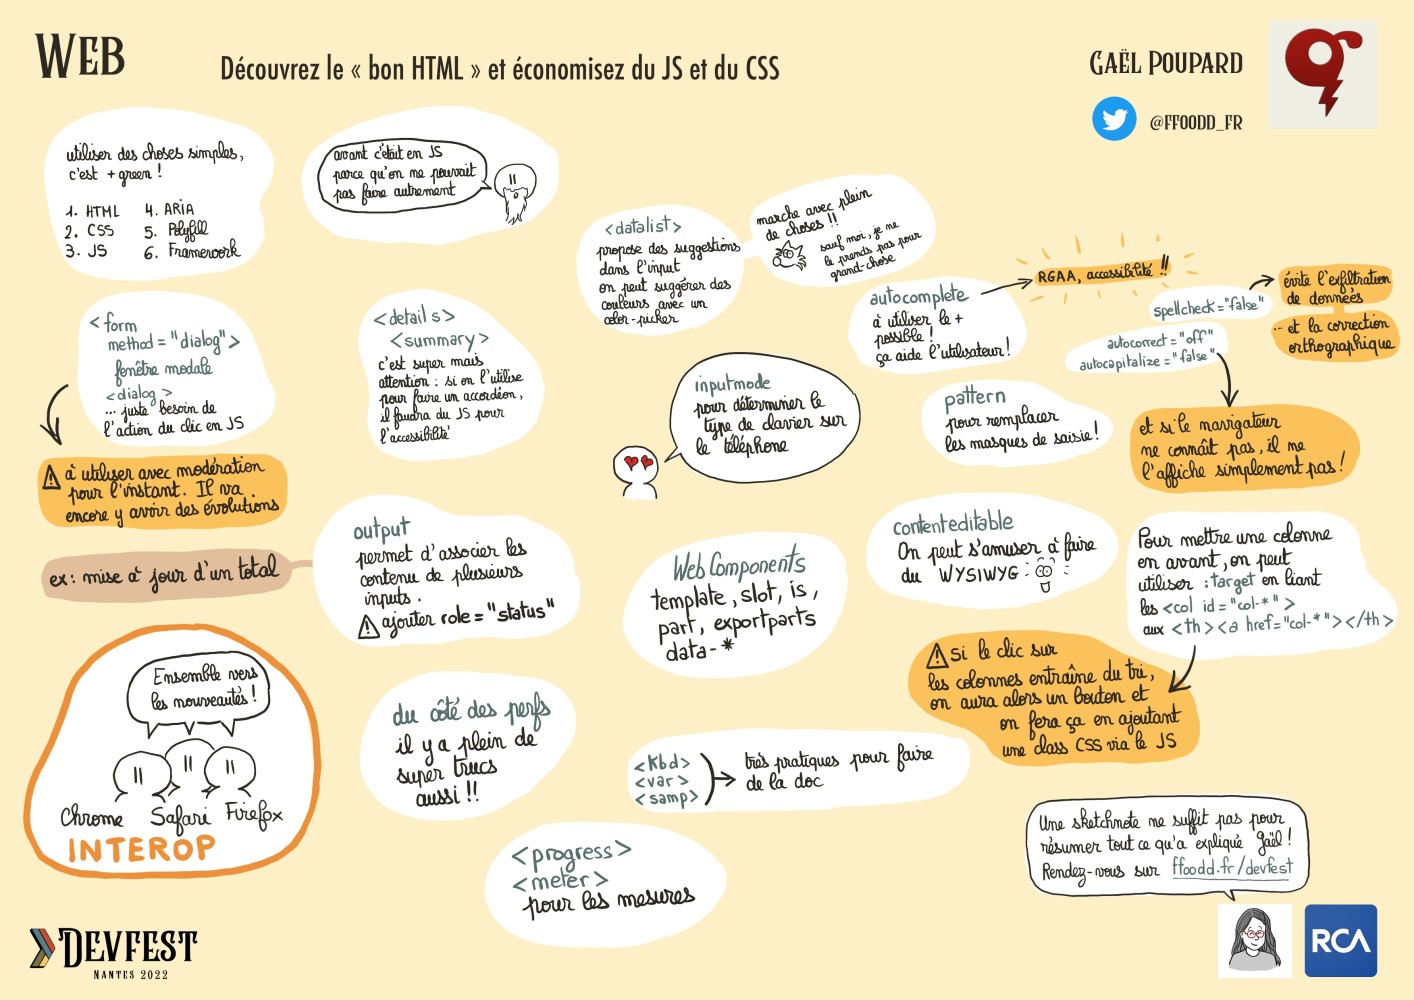 WEB
Découvrez le « bon HTML » et économisez du JS et du CSS
GAËL POUPARD
@FFOODD_FR
utiliser des choses simples,
c'est + green !
1. HTML
2. CSS
3. JS
4. ARIA
5. Polyfill
6. Framework
avant c'était en JS
parce qu'on ne pouvait
pas faire autrement
<datalist>
propose des suggestions
dans l'input
on peut suggérer des
couleurs avec un
color-picker
marche avec plein
de choses !!
sauf moi, je ne
le prends pas pour
grand-chose
autocomplete
à utiliser le +
possible !
ça aide l'utilisateur !
RGAA, accessibilité !!
spellcheck="false"
évite l'exfiltration
de données
... et la correction
orthographique
autocorrect = "off"
autocapitalize = "false"
et si le navigateur
ne connaît pas, il ne
l'affiche simplement pas !
<form
method = "dialog">
fenêtre modale
<dialog>
... juste besoin de
l'action du clic en JS
à utiliser avec modération
pour l'instant. Il va
encore y avoir des évolutions
<details>
<summary>
c'est super mais
attention : si on l'utilise
pour faire un accordéon,
il faudra du JS pour
l'accessibilité
inputmode
pour déterminer le
type de clavier sur
le téléphone
pattern
pour remplacer
les masques de saisie !
output
permet d'associer les
contenu de plusieurs
inputs.
ajouter role="status"
ex : mise à jour d'un total
Web Components
template, slot, is,
part, exportparts
data-*
contenteditable
On peut s'amuser à faire
du WYSIWYG
Pour mettre une colonne
en avant, on peut
utiliser :target en liant
les <col id="col-*">
aux <th><a href="col-*"></th>
si le clic sur
les colonnes entraîne du tri,
on aura alors un bouton et
on fera ça en ajoutant
une class CSS via le JS
Ensemble vers
les nouveautés !
Chrome Safari Firefox
INTEROP
du côté des perfs
il y a plein de
super trucs
aussi !!
<kbd>
<var>
<samp>
très pratiques pour faire
de la doc
<progress>
<meter>
pour les mesures
Une sketchnote ne suffit pas pour
résumer tout ce qu'a expliqué Gaël !
Rendez-vous sur ffoodd.fr/devfest
DEVFEST
NANTES 2022
RCA